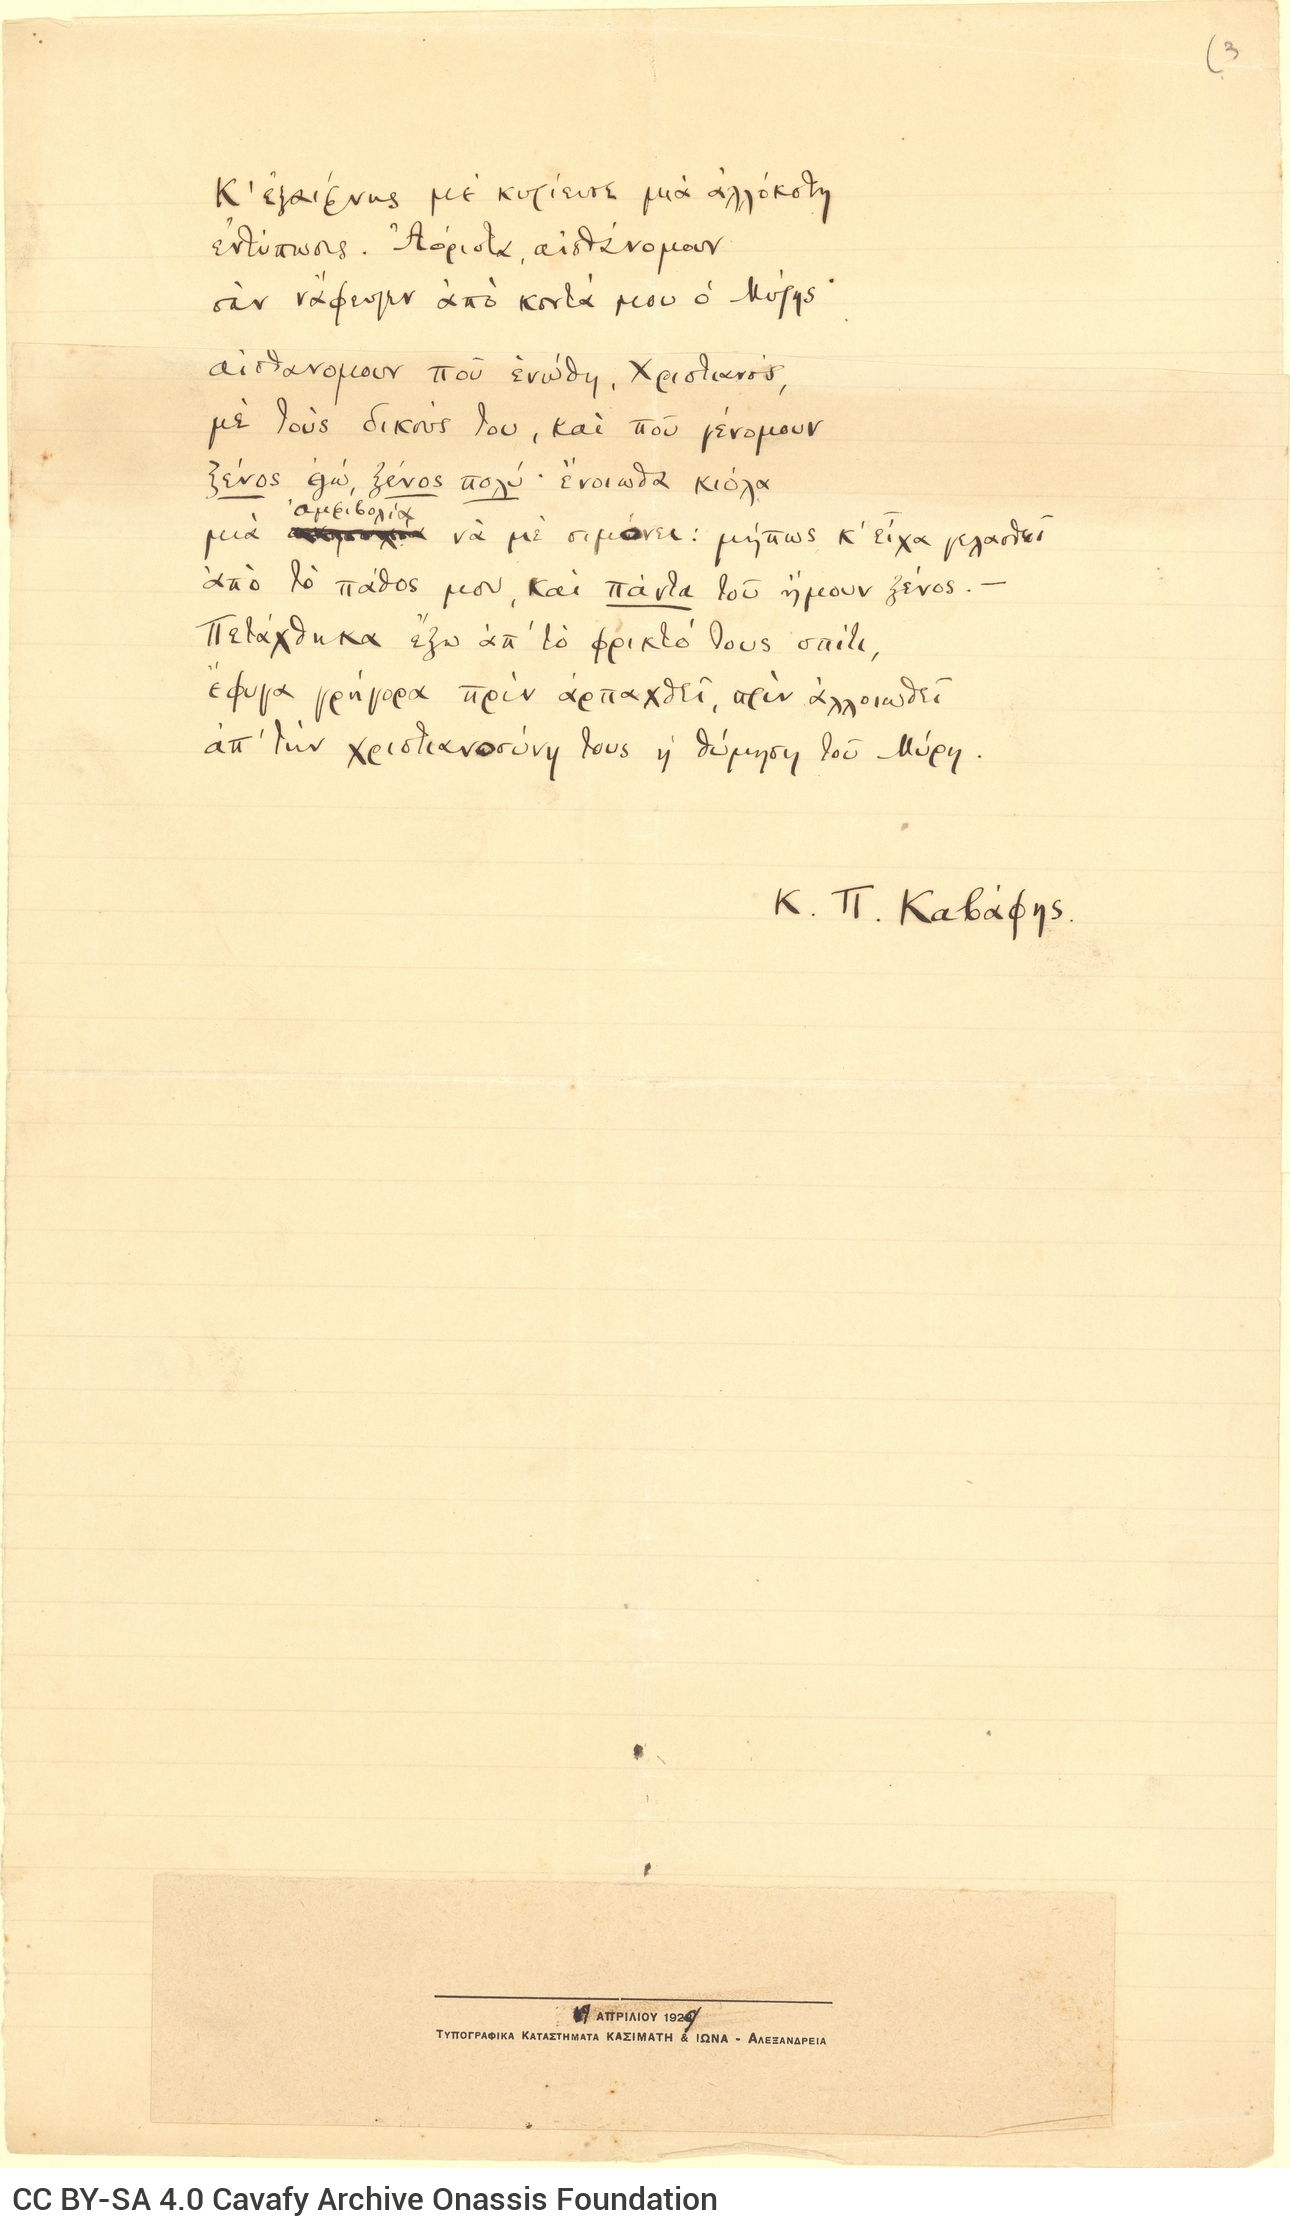 (3
Κ' ἐξαίφνης μὲ κυρίευσε μιὰ ἀλλόκοτη
ἐντύπωσις. Ἀόριστα, αἰσθάνομουν
σὰν νἄφευγεν ἀπὸ κοντά μου ὁ Μύρης·
αἰσθανομουν ποῦ ἑνώθη, Χριστιανός,
μὲ τοὺς δικούς του, καὶ ποῦ γένομουν
ξένος ἐγώ, ξένος πολύ· ἔνοιωθα κιόλα
ἀμφιβολία
μιὰ νὰ μὲ σιμόνει: μήπως κ' εἶχα γελασθεῖ
ἀπὸ τὸ πάθος μου, καὶ πάντα τοῦ ἤμουν ξένος. —
Πετάχθηκα ἔξω ἀπ' τὸ φρικτό τους σπίτι,
ἔφυγα γρήγορα πρὶν ἁρπαχθεῖ, πρὶν ἀλλοιωθεῖ
ἀπ' τὴν χριστιανοσύνη τους ἡ θύμηση τοῦ Μύρη.
Κ. Π. Καβάφης.
ΑΠΡΙΛΙΟΥ 1929
ΤΥΠΟΓΡΑΦΙΚΑ ΚΑΤΑΣΤΗΜΑΤΑ ΚΑΣΙΜΑΤΗ & ΙΩΝΑ - ΑΛΕΞΑΝΔΡΕΙΑ
CC BY-SA 4.0 Cavafy Archive Onassis Foundation